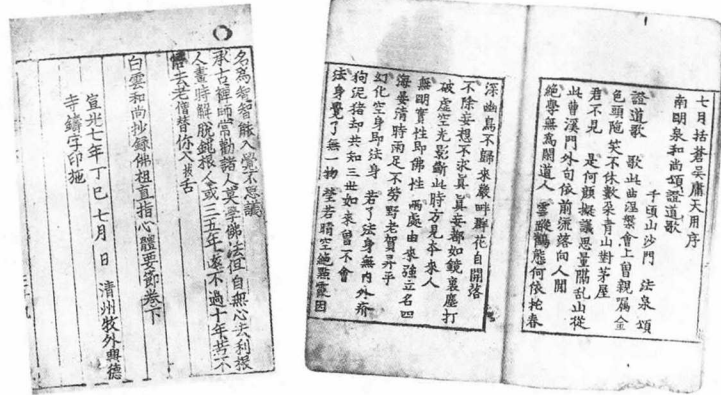 七月括蒼吳庸天用序
南明泉和尚頌證道歌
千頃山沙門 法泉 頌
證道歌 歌此曲涅槃會上曾親囑金
色頭陁笑不休數朶青山對茅屋
君不見 是何顔擬議思量隔乱山從
此曹溪門外句依前流落向人間
絶學無爲閑道人 雲蹤鶴態何依托春
深幽鳥不歸來嵓畔群花自開落
不除妄想不求真 真妄都如鏡裏塵打
破虚空光影斷此時方見本來人
無明實性即佛性 兩處由來強立名四
海晏清時雨足不勞野老賀昇平
幻化空身即法身 若了法身無内外疥
狗泥猪却共知三世如來曾不會
法身覺了無一物 瑩若晴空絶點霞因
名爲智智能入覺不思議
承古禪師常勸諸人莫學佛法但自無心去利根
人晝時解脫鈍根人或三五年遠不過十年若不
悟去老僧替你入拔舌
白雲和尚抄錄佛祖直指心體要節卷下
宣光七年丁巳七月 日 清州牧外興德
寺鑄字印施